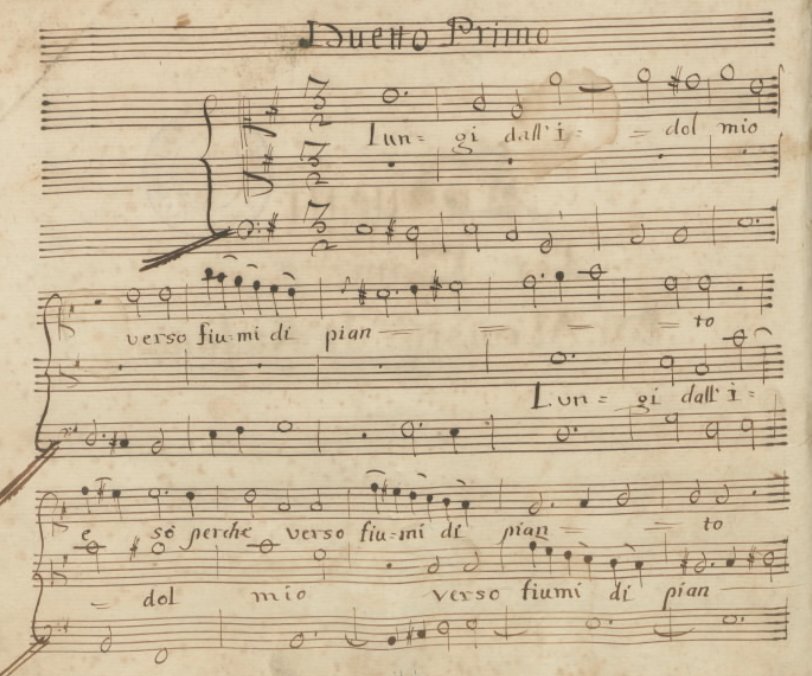 Duetto Primo
3 2
Lun= gi dall' i= = dol mio
3 2
3 2
verso fiu=mi di pian = = = to
Lun= gi dall' i=
e sò perche verso fiu=mi di pian = = to
= dol mio verso fiumi di pian